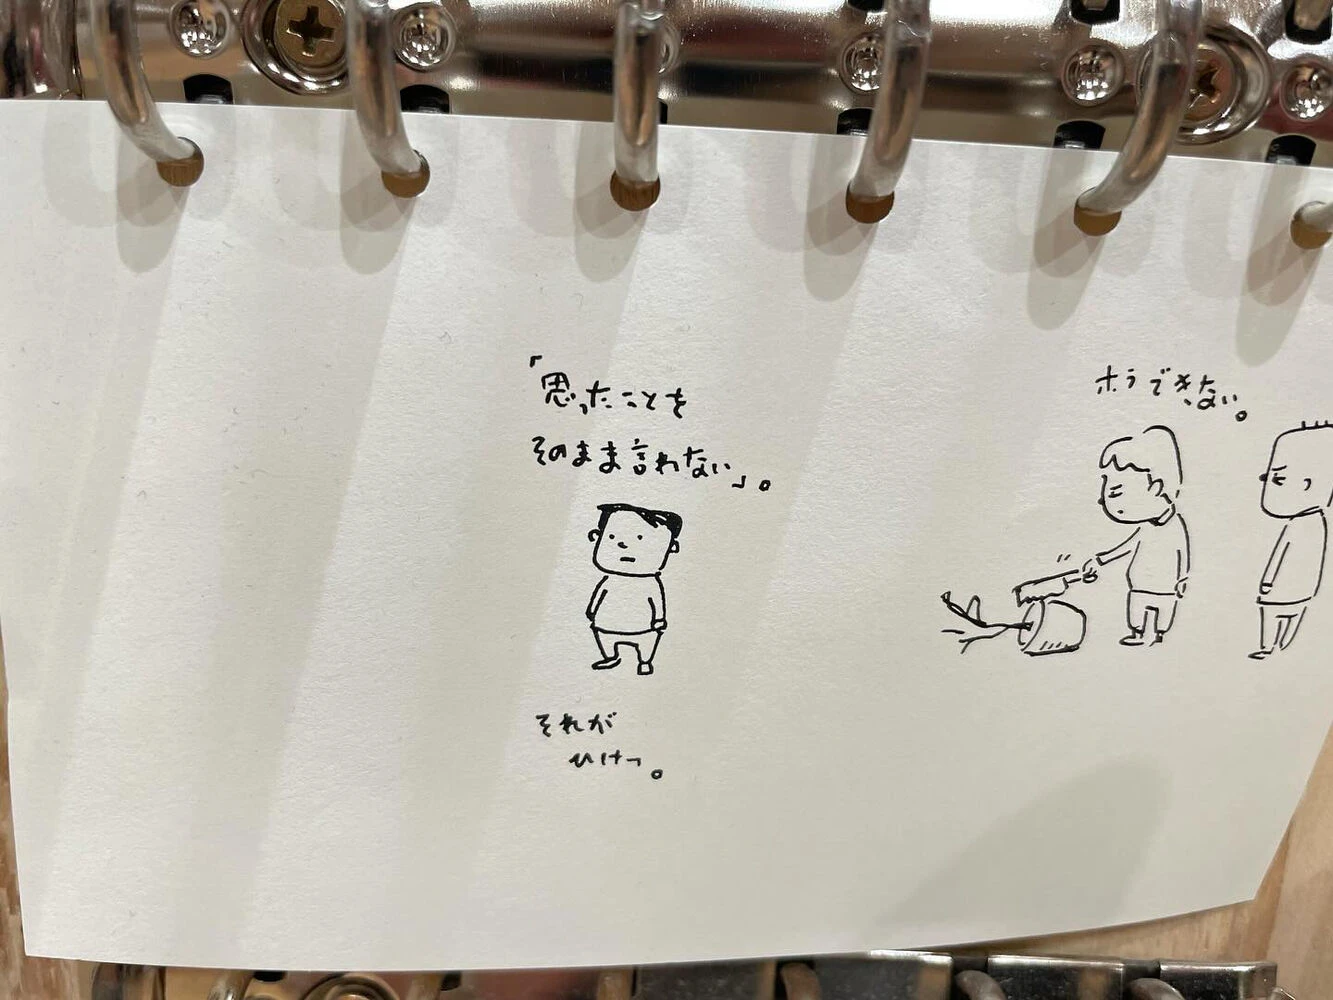 「思ったことを
そのまま言わない」。
それが
ひけつ。
ホラできない。